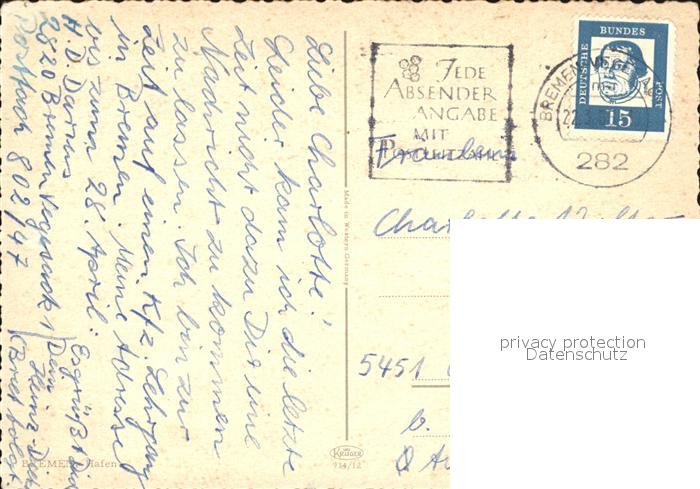 Liebe Charlotte!
Leider kam ich die letzte
Zeit nicht dazu Dir eine
Nachricht zu kommen
zu lassen. Ich bin zur
Zeit auf einen Kfz. Lehrgang
in Bremen. Meine Adresse
bis zum 28. April:
H. D.
2820 Bremen Vegesack 1
Postfach 802/47
Es grüßt Dich
Dein Heinz Dieter
JEDE
ABSENDER
ANGABE
MIT
POSTLEITZAHL
BREMEN-VEGESACK
282
DEUTSCHE BUNDESPOST
15
Fräulein
Charlotte
5451
b.
Made in Western Germany
KRÜGER
914/12
BREMEN Hafen
privacy protection
Datenschutz